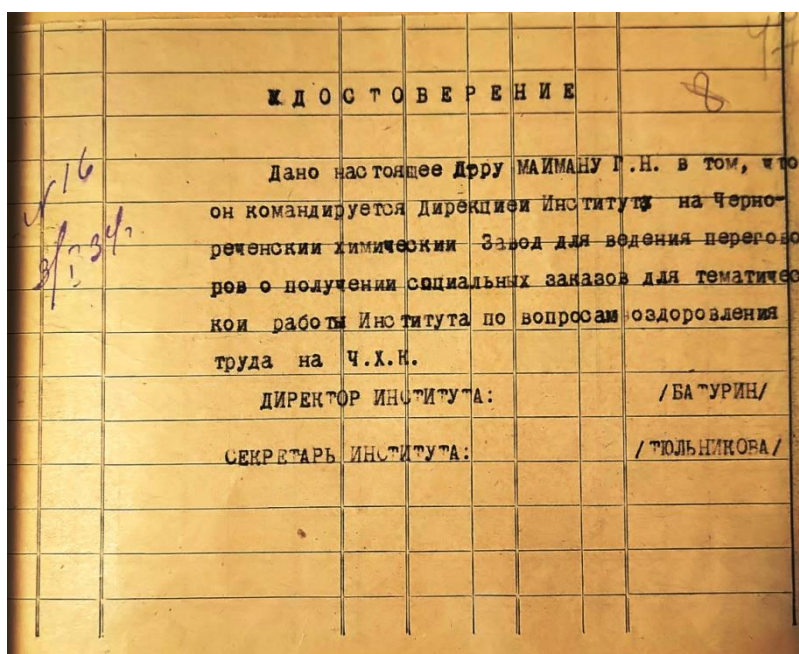 47
8
УДОСТОВЕРЕНИЕ
N 16
3/I 34г.
Дано настоящее Д-ру МАИМАНУ Г.Н. в том, что
он командируется Дирекциеи Института на Черно-
реченскии химическии Завод для ведения перегово
ров о получении социальных заказов для тематичес
кои работы Института по вопросам оздоровления
труда на Ч.Х.К.
ДИРЕКТОР ИНСТИТУТА: /БАТУРИН/
СЕКРЕТАРЬ ИНСТИТУТА: /ТЮЛЬНИКОВА/